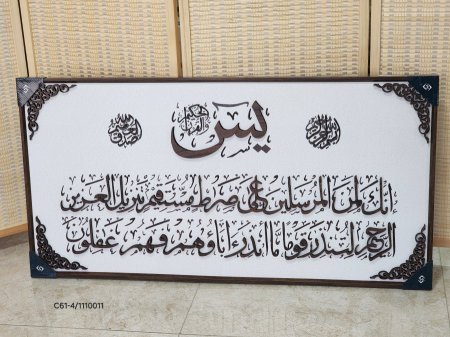 يس والقرآن الحكيم
صدق الله العظيم
إنك لمن المرسلين على صراط مستقيم تنزيل العزيز
الرحيم لتنذر قوما ما أنذر آباؤهم فهم غفلون
C61-4/1110011